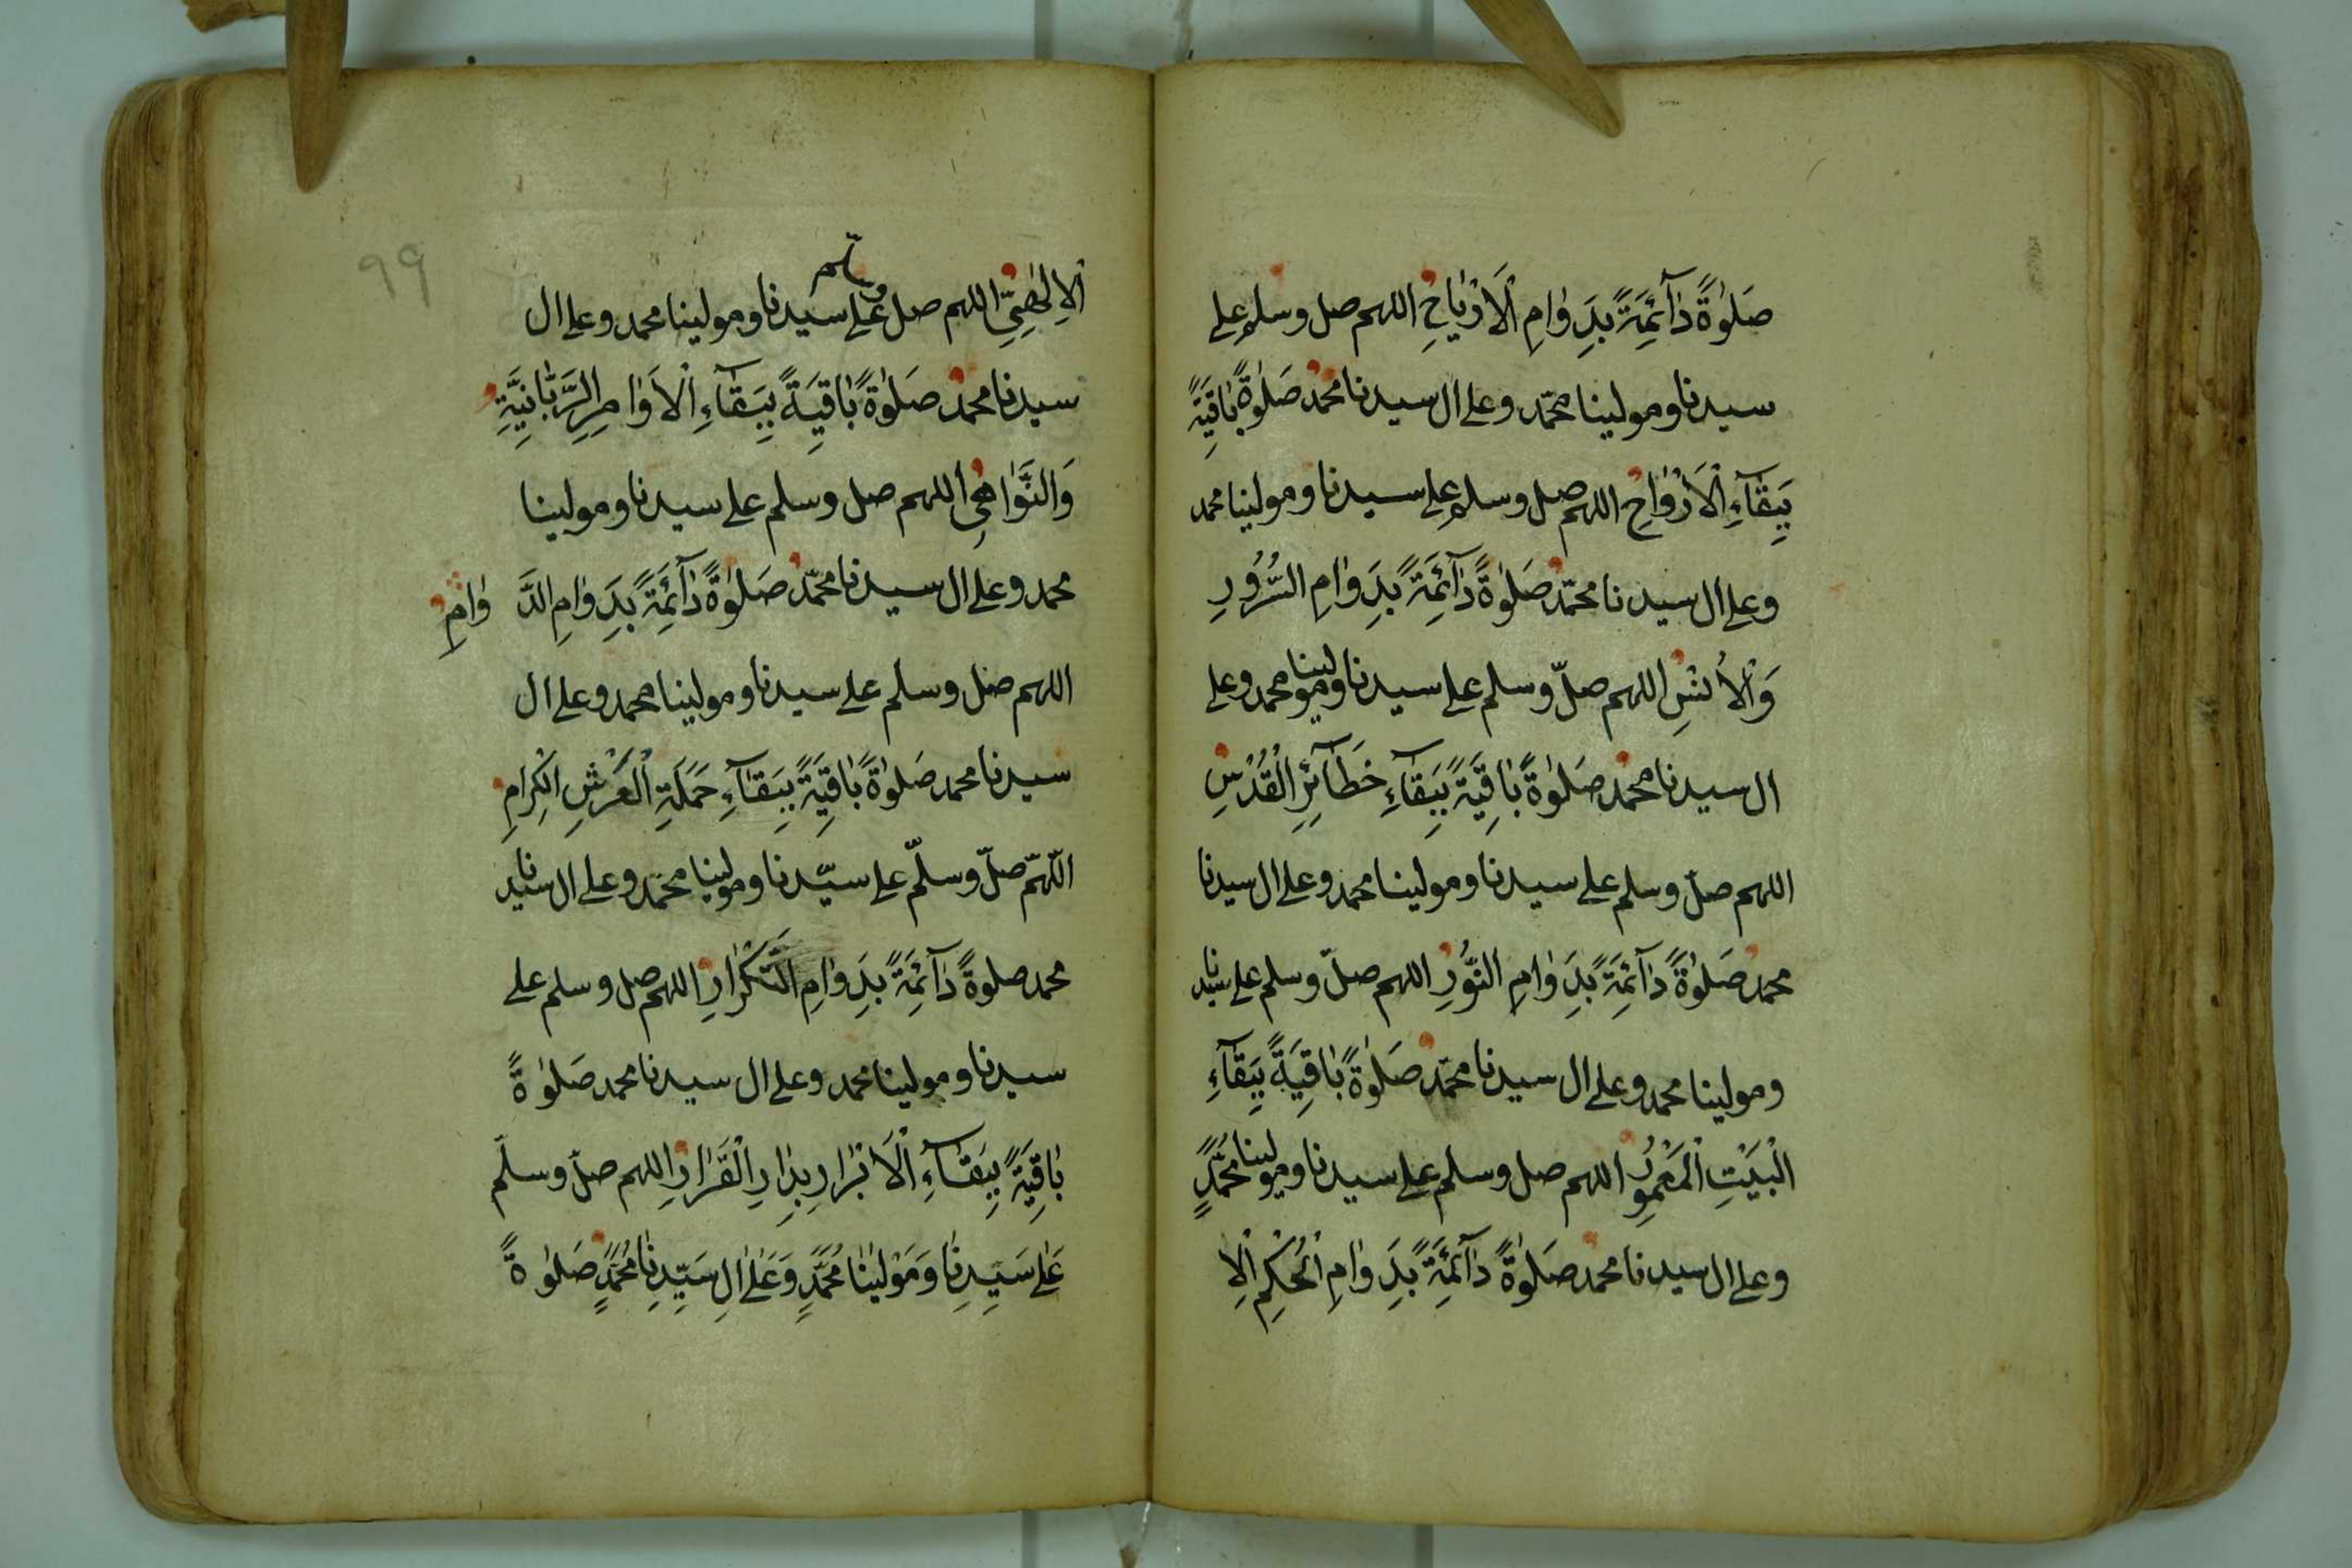 صَلٰوةً دٰآئِمَةً بِدَوٰامِ الْاَرْيٰاحِ اللهم صل وسلم على
سيدنا ومولينا محمّد وعلى ال سيدنا محمّد صَلٰوةً بٰاقِيَةً
بِبَقٰآءِ الْاَرْوٰاحِ اللهم صل وسلم على سيدنا ومولينا محمد
وعلى ال سيدنا محمّد صَلٰوةً دٰآئِمَةً بِدَوٰامِ السُّرُورِ
وَالْاُنْسِ اللهم صلّ وسلم على سيدنا ومولينا محمد وعلى
ال سيدنا محمّد صَلٰوةً بٰاقِيَةً بِبَقٰآءِ خَطٰآئِرِ الْقُدْسِ
اللهم صلّ وسلم على سيدنا ومولينا محمد وعلى ال سيدنا
محمد صَلٰوةً دٰآئِمَةً بِدَوٰامِ النُّورِ اللهم صلّ وسلم على سيدنا
ومولينا محمد وعلى ال سيدنا محمّد صَلٰوةً بٰاقِيَةً بِبَقٰآءِ
الْبَيْتِ الْمَعْمُورِ اللهم صل وسلم على سيدنا ومولينا محمّدٍ
وعلى ال سيدنا محمد صَلٰوةً دٰآئِمَةً بِدَوٰامِ الْحُكْمِ الْاِ
٩٩
الْاِلٰهِيِّ اللهم صل وسلم على سيدنا ومولينا محمد وعلى ال
سيدنا محمد صَلٰوةً بٰاقِيَةً بِبَقٰآءِ الْاَوٰامِرِ الرَّبّٰانِيَّةِ
وَالنَّوٰاهِي اللهم صل وسلم على سيدنا ومولينا
محمد وعلى ال سيدنا محمّد صَلٰوةً دٰآئِمَةً بِدَوٰامِ الدَّوٰامِ
اللهم صل وسلم على سيدنا ومولينا محمد وعلى ال
سيدنا محمد صَلٰوةً بٰاقِيَةً بِبَقٰآءِ حَمَلَةِ الْعَرْشِ الْكِرٰامِ
اللّهمّ صلّ وسلّم على سيّدنا ومولينا محمّد وعلى ال سيدنا
محمد صلوةً دٰآئِمَةً بِدَوٰامِ التَّكْرٰارِ اللهم صل وسلم على
سيدنا ومولينا محمد وعلى ال سيدنا محمد صَلٰوةً
بٰاقِيَةً بِبَقٰآءِ الْاَبْرٰارِ بِدٰارِ الْقَرٰارِ اللهم صلّ وسلّم
عَلٰى سَيِّدِنٰا وَمَوْلٰينٰا مُحَمَّدٍ وَعَلٰى اٰلِ سَيِّدِنٰا مُحَمَّدٍ صَلٰوةً